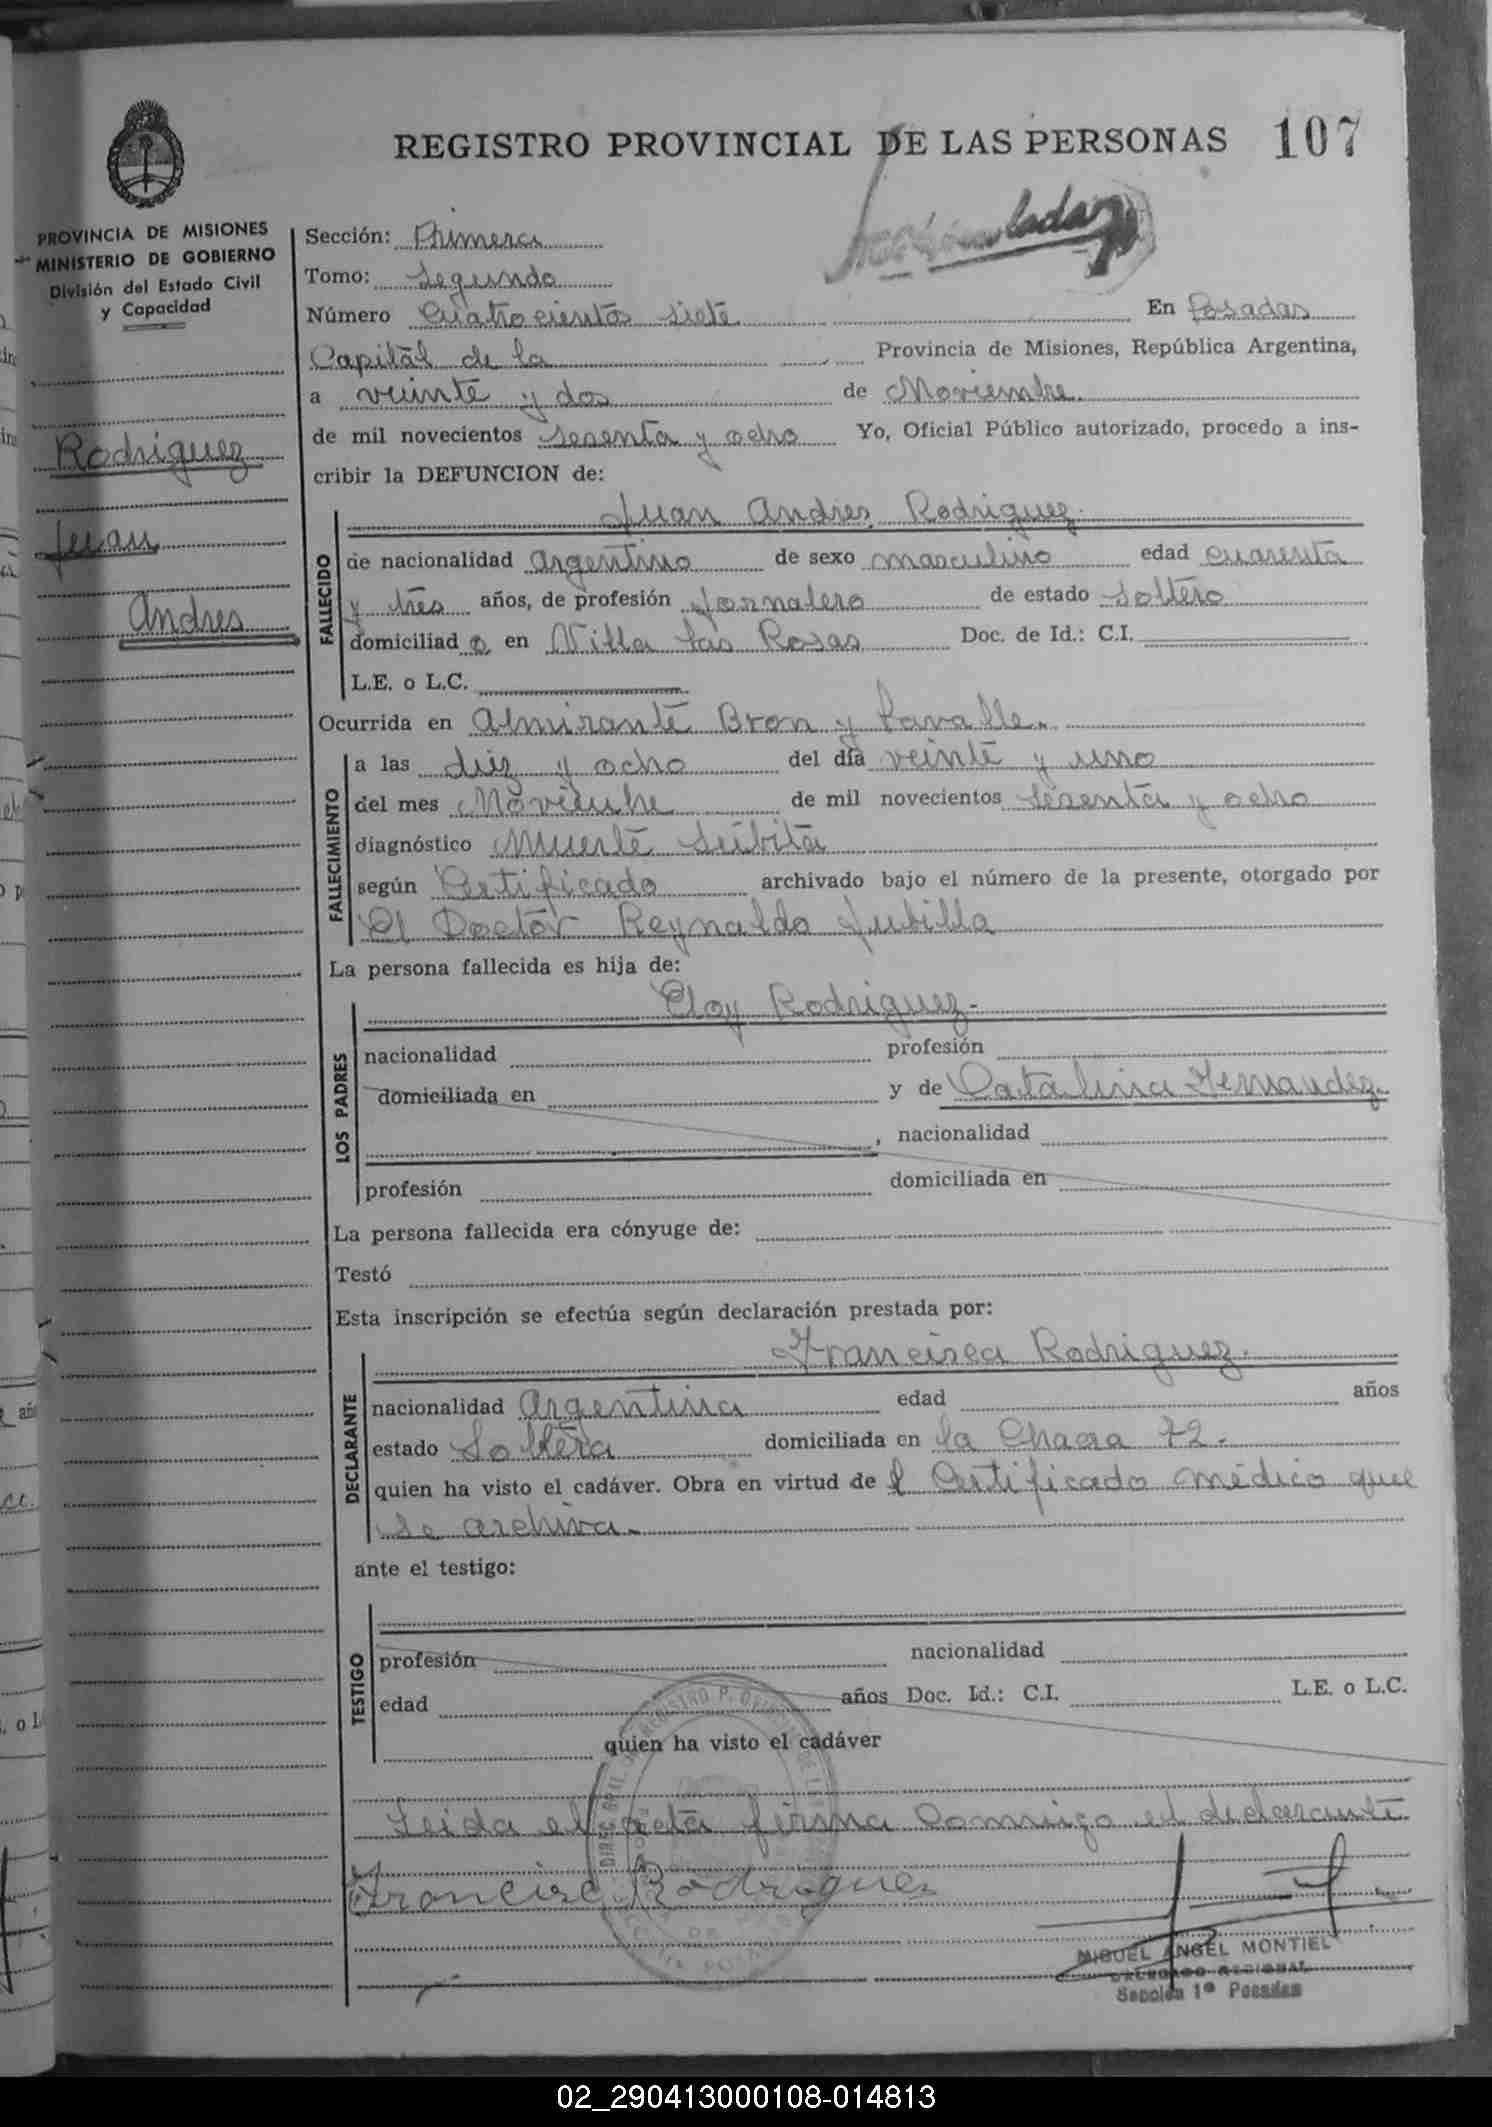 REGISTRO PROVINCIAL DE LAS PERSONAS 107
PROVINCIA DE MISIONES
MINISTERIO DE GOBIERNO
División del Estado Civil
y Capacidad
Rodriguez
Juan
Andres
Sección: Primera
Tomo: Segundo
Número Cuatrocientos siete En Posadas
Capital de la Provincia de Misiones, República Argentina,
a veinte y dos de Noviembre
de mil novecientos sesenta y ocho Yo, Oficial Público autorizado, procedo a ins-
cribir la DEFUNCION de:
Juan Andres Rodriguez
FALLECIDO
de nacionalidad Argentino de sexo masculino edad cuarenta
y tres años, de profesión Jornalero de estado Soltero
domiciliado en Villa Las Rosas Doc. de Id.: C.I.
L.E. o L.C.
Ocurrida en Almirante Bron y Lavalle.
FALLECIMIENTO
a las diez y ocho del día veinte y uno
del mes Noviembre de mil novecientos sesenta y ocho
diagnóstico Muerte Súbita
según Certificado archivado bajo el número de la presente, otorgado por
El Doctor Reynaldo Jubilla
La persona fallecida es hija de:
Eloy Rodriguez.
LOS PADRES
nacionalidad profesión
domiciliada en y de Catalina Hernandez.
, nacionalidad
profesión domiciliada en
La persona fallecida era cónyuge de:
Testó
Esta inscripción se efectúa según declaración prestada por:
Francisca Rodriguez.
DECLARANTE
nacionalidad Argentina edad años
estado Soltera domiciliada en la Chacra 72.
quien ha visto el cadáver. Obra en virtud del Certificado médico que
se archiva.
ante el testigo:
TESTIGO
profesión nacionalidad
edad años Doc. Id.: C.I. L.E. o L.C.
quien ha visto el cadáver
Leida el acta firma Conmigo el declarante
Francisca Rodrigues
MIGUEL ANGEL MONTIEL
DELEGADO REGIONAL
Sección 1ª Posadas
02_290413000108-014813